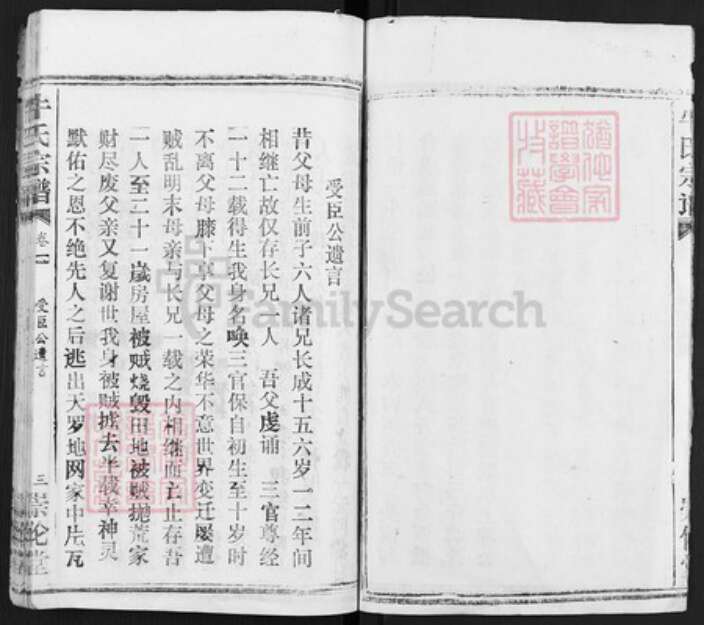 受臣公遗言
昔父母生前子六人诸兄长成十五六岁一二年间
相继亡故仅存长兄一人 吾父虔诵 三官尊经
一十二载得生我身名唤三官保自初生至十岁时
不离父母膝下享父母之荣华不意世界变迁屡遭
贼乱明末母亲与长兄一载之内相继而亡止存吾
一人至二十一岁房屋被贼烧毁田地被贼抛荒家
财尽废父亲又复谢世我身被贼掳去半载幸神灵
默佑之恩不绝先人之后逃出天罗地网家中片瓦
氏宗谱
卷一
受臣公遗言
三
崇伦堂
氏宗谱
FamilySearch